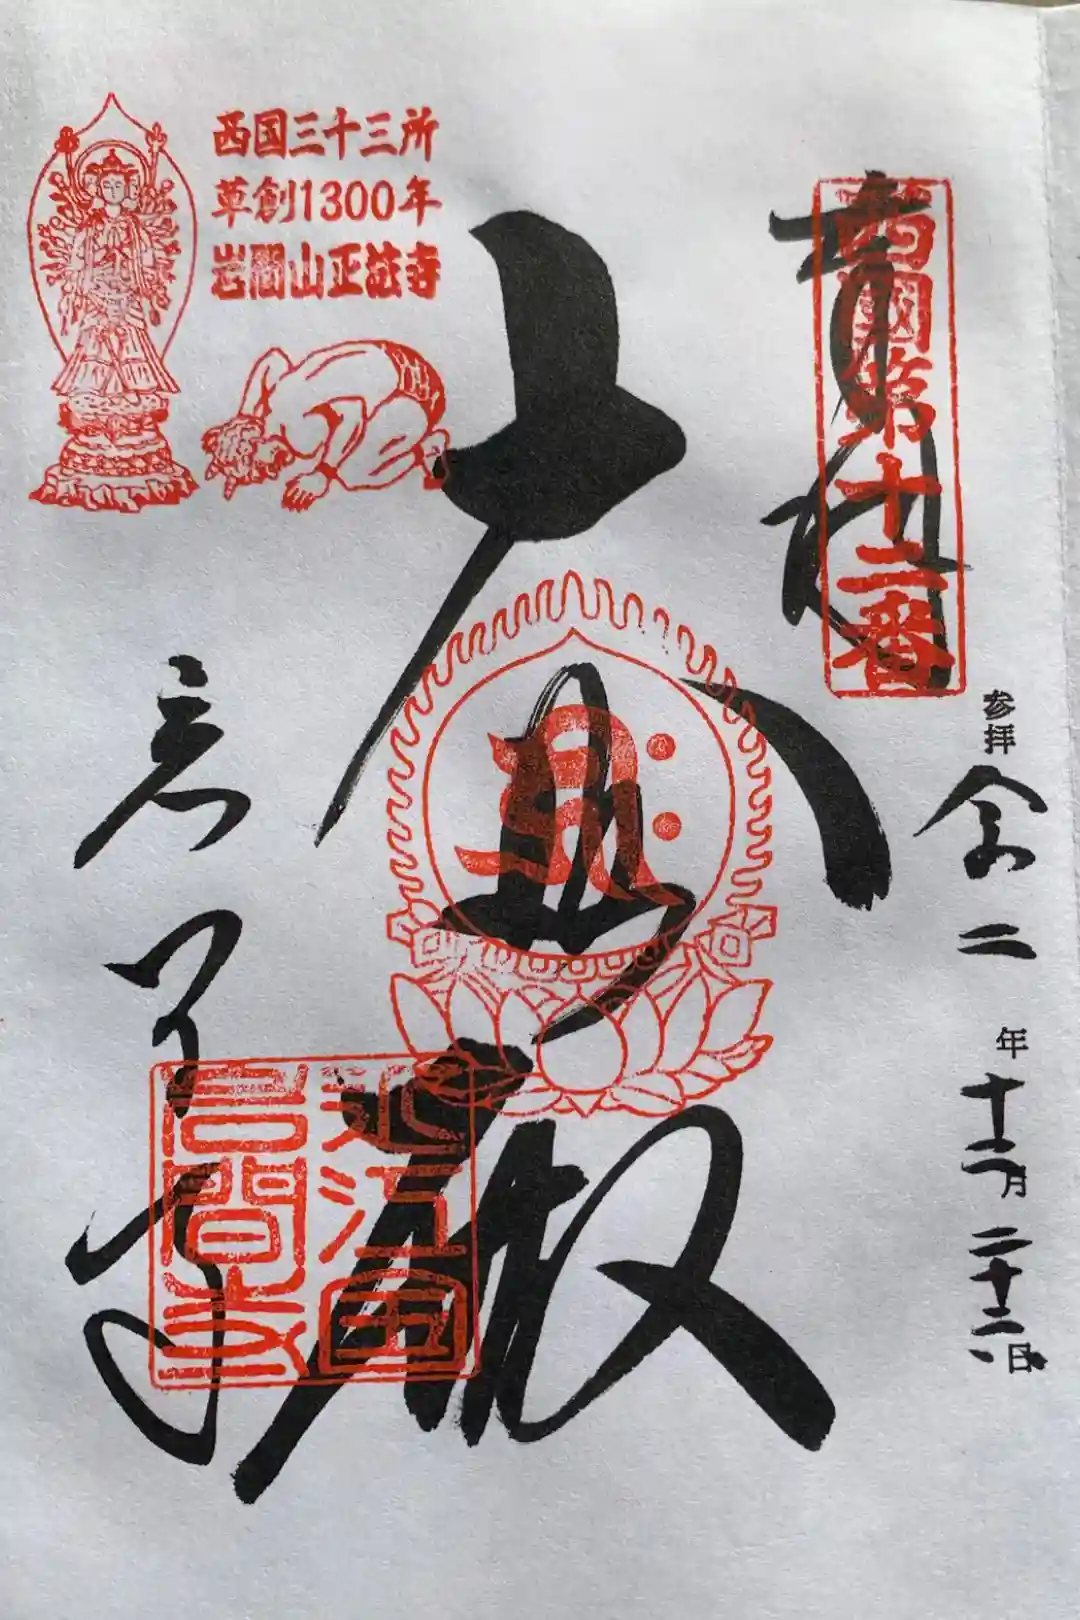 西国三十三所
草創1300年
岩間山正法寺
西國第十二番
奉拝
参拝
令和二年十二月二十二日
大悲殿
岩間寺
近江国
岩間寺